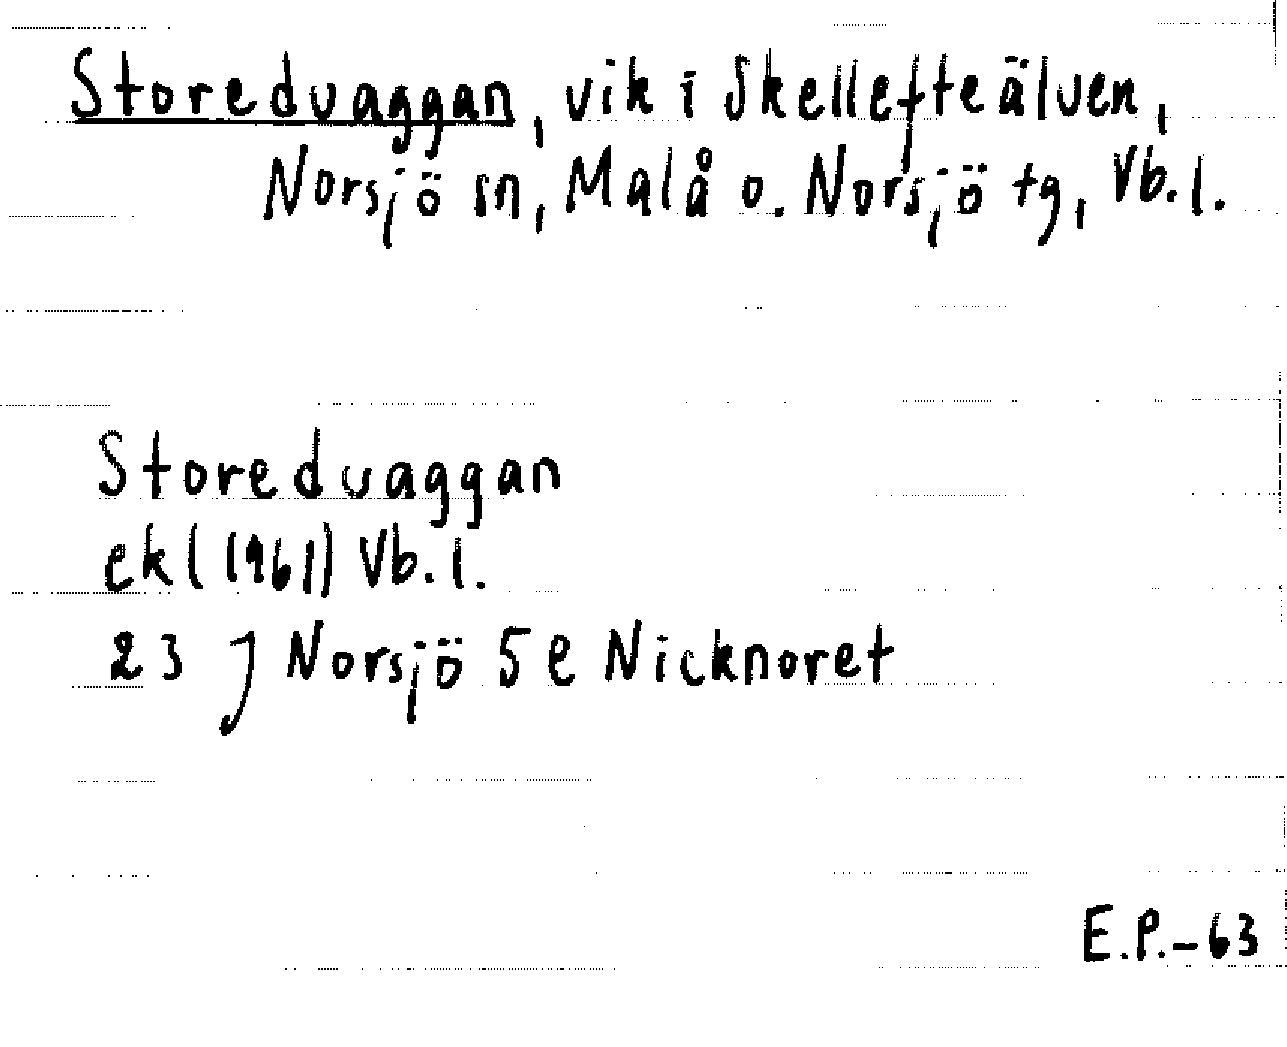 Storedvaggan, vik i Skellefteälven,
Norsjö sn, Malå o. Norsjö tg, Vb.l.
Storedvaggan
ekl (1961) Vb.l.
23 J Norsjö 5e Nicknoret
E.P.-63